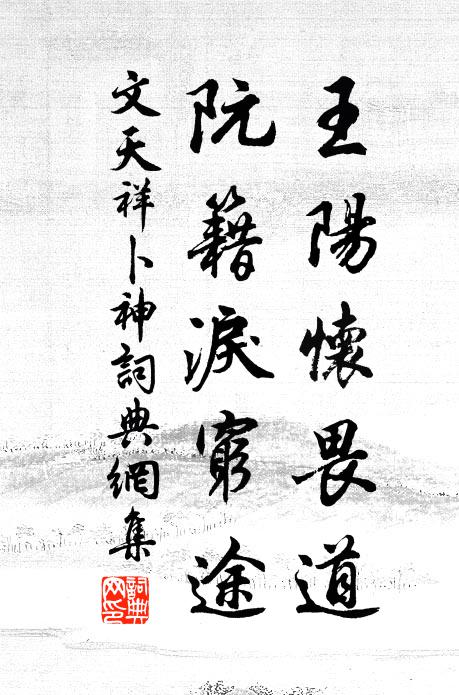 王陽懷畏道
阮籍淚窮途
文天祥卜神詞典網集
詞典網印